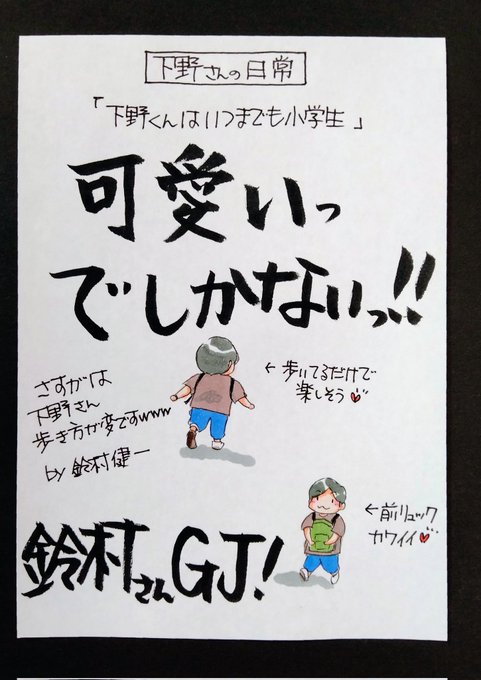 下野さんの日常
「下野くんはいつまでも小学生」
可愛いっ
でしかないっ!!
←歩いてるだけで
楽しそう
さすがは
下野さん
歩き方が変ですwww
by 鈴村健一
←前リュック
カワイイ
鈴村さんGJ!